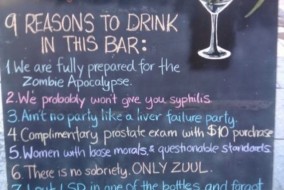 9 REASONS TO DRINK
IN THIS BAR:
1. We are fully prepared for the
Zombie Apocalypse.
2. We probably won't give you syphilis
3. Ain't no party like a liver failure party.
4 Complimentary prostate exam with $10 purchase
5. Women with loose morals, & questionable standards
6. There is no sobriety. ONLY ZUUL.
7. I put LSD in one of the bottles and forgot